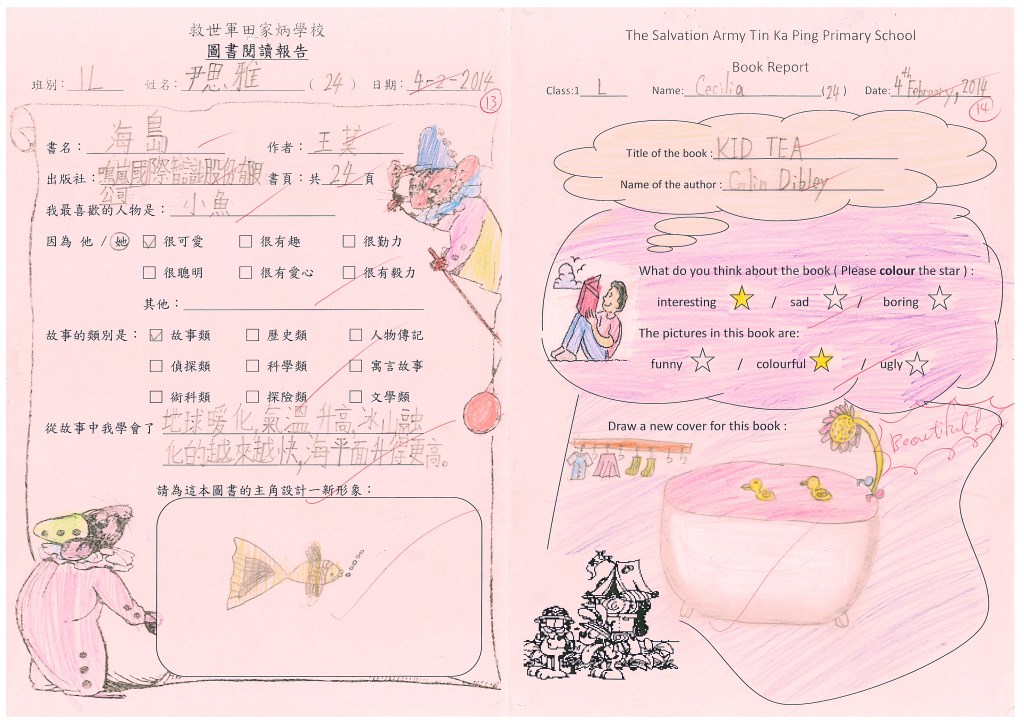 救世軍田家炳學校
圖書閱讀報告
班別：1L 姓名：尹思雅 (24) 日期：4-2-2014
13
書名：海島 作者：王芙
出版社：鳴嵐國際告誌股份有限公司 書頁：共24頁
我最喜歡的人物是：小魚
因為 他 / 她 很可愛 很有趣 很勤力
很聰明 很有愛心 很有毅力
其他：
故事的類別是： 故事類 歷史類 人物傳記
偵探類 科學類 寓言故事
術科類 探險類 文學類
從故事中我學會了 地球暖化,氣溫升高,冰山融
化的越來越快,海平面升得更高。
請為這本圖書的主角設計一新形象：
The Salvation Army Tin Ka Ping Primary School
Book Report
Class:1 L Name: Cecilia (24) Date: 4th February, 2014
14
Title of the book : KID TEA
Name of the author : Glin Dibley
What do you think about the book ( Please colour the star ) :
interesting / sad / boring
The pictures in this book are:
funny / colourful / ugly
Draw a new cover for this book :
Beautiful!